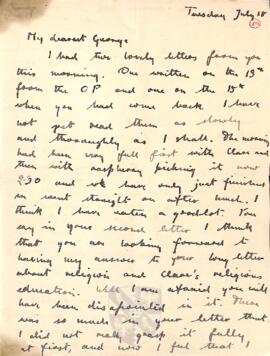 Tuesday July 18
My dearest George
I had two lovely letters from you
this morning. One written on the 13th
from the OP and one on the 15th
when you had come back. I have
not yet read them as slowly
and thoroughly as I shall. The morning
had been very full first with Clare and
then with raspberry picking it now
2.30 and we have only just finished
as I went straight on after lunch. I
think I have eaten a good lot. You
say in your second letter I think
that you are looking forward to
having my answer to your long letter
about religion and Clare's religious
education. Well I am afraid you will
have been disappointed in it. There
was so much in your letter that
I did not really grasp it fully
at first, and now I feel that I